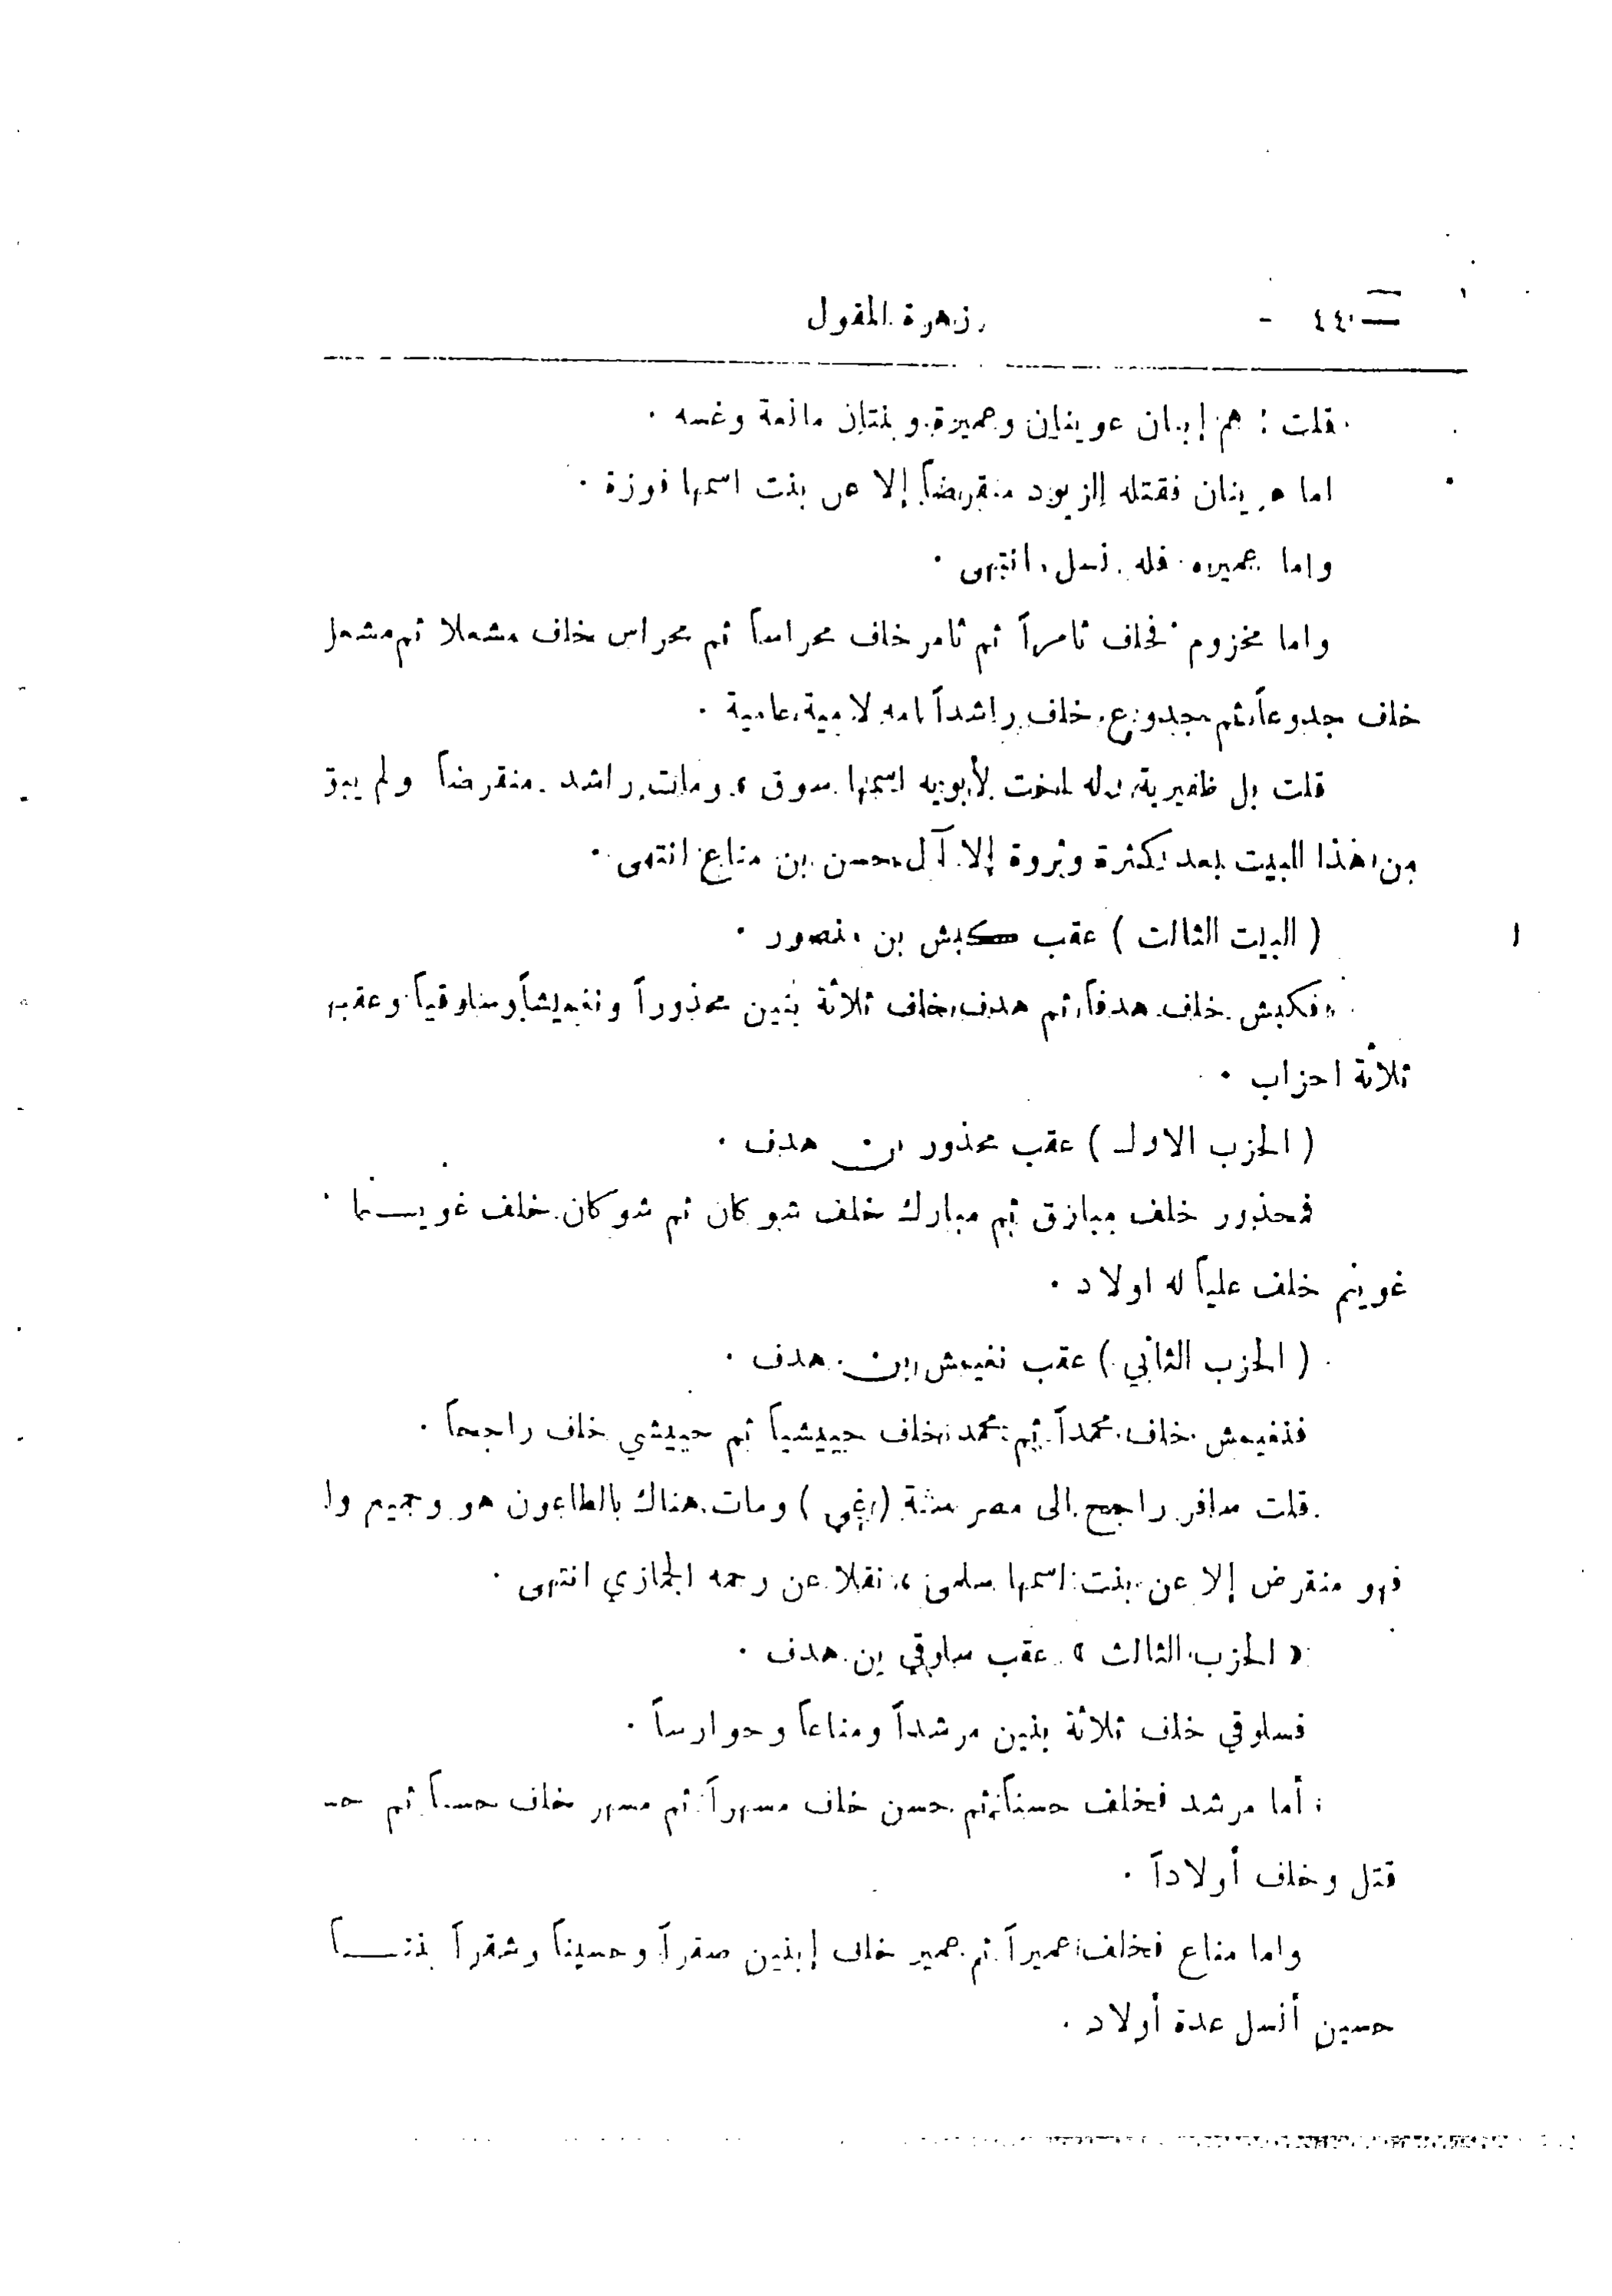 ٤٤ - زهرة المقول
قلت : هم إبنان عوينان وعميرة وبنتان مانعة وغسه .
اما عرينان فقتله الزيود منقرضاً إلا عن بنت اسمها فوزة .
واما عميره فله نسل انتهى .
واما مخزوم فخلف ثامراً ثم ثامر خلف محراساً ثم محراس خلف مشعلا ثم مشعل
خلف جدوعاً ثم جدوع خلف راشداً امه لامية عامية .
قلت بل ظفيرية وله اخت لأبويه اسمها سوق ، ومات راشد منقرضاً ولم يبق
من هذا البيت بعد كثرة وثروة إلا آل حسن بن مناع انتهى .
( البيت الثالث ) عقب كبش بن منصور .
فكبش خلف هدفاً ثم هدف خلف ثلاثة بنين محذوراً ونغيمشاً وسلوقياً وعقبهم
ثلاثة احزاب .
( الحزب الاول ) عقب محذور بن هدف .
فمحذور خلف مبارك ثم مبارك خلف شوكان ثم شوكان خلف غوينما
غوينم خلف علياً له اولاد .
( الحزب الثاني ) عقب نغيمش بن هدف .
فنغيمش خلف محمداً ثم محمد خلف حبيشياً ثم حبيشي خلف راجحاً .
قلت سافر راجح الى مصر سنة ( ) ومات هناك بالطاعون هو وجميع
فهو منقرض إلا عن بنت اسمها سلمى ، نقلا عن رحمه الجمازي انتهى .
« الحزب الثالث » عقب سلوقي بن هدف .
فسلوقي خلف ثلاثة بنين مرشداً ومناعاً وحوارساً .
أما مرشد فخلف حسناً ثم حسن خلف مسهراً ثم مسهر خلف حسناً ثم
قتل وخلف أولاداً .
واما مناع فخلف عميراً ثم عمير خلف إبنين صقراً وحسيناً وشقراً بنتـــاً
حسين أنسل عدة أولاد .